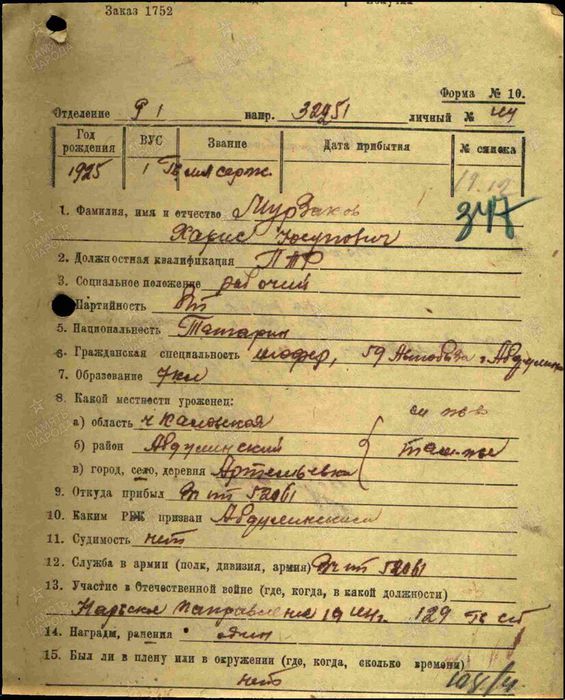 Заказ 1752
Форма № 10.
Отделение Р 1 напр. 32951 личный №
Год рождения ВУС Звание Дата прибытия № списка
1925 1 Гв мл серж. 19.12
1. Фамилия, имя и отчество Мурзаков
347
Харис Юсупович
2. Должностная квалификация ПТР
3. Социальное положение рабочий
Партийность
5. Национальность Татарин
6. Гражданская специальность шофер, 59 Автобаза г. Абдулино
7. Образование 7кл
8. Какой местности уроженец:
а) область Чкаловская
б) район Абдулинский
в) город, село, деревня Артемьевка
9. Откуда прибыл 52061
10. Каким РВК призван Абдулинским
11. Судимость нет
12. Служба в армии (полк, дивизия, армия) 52061
13. Участие в Отечественной войне (где, когда, в какой должности)
направление 19 129 Гв сп
14. Наградн, ранения один
15. Был ли в плену или в окружении (где, когда, сколько времени)
нет